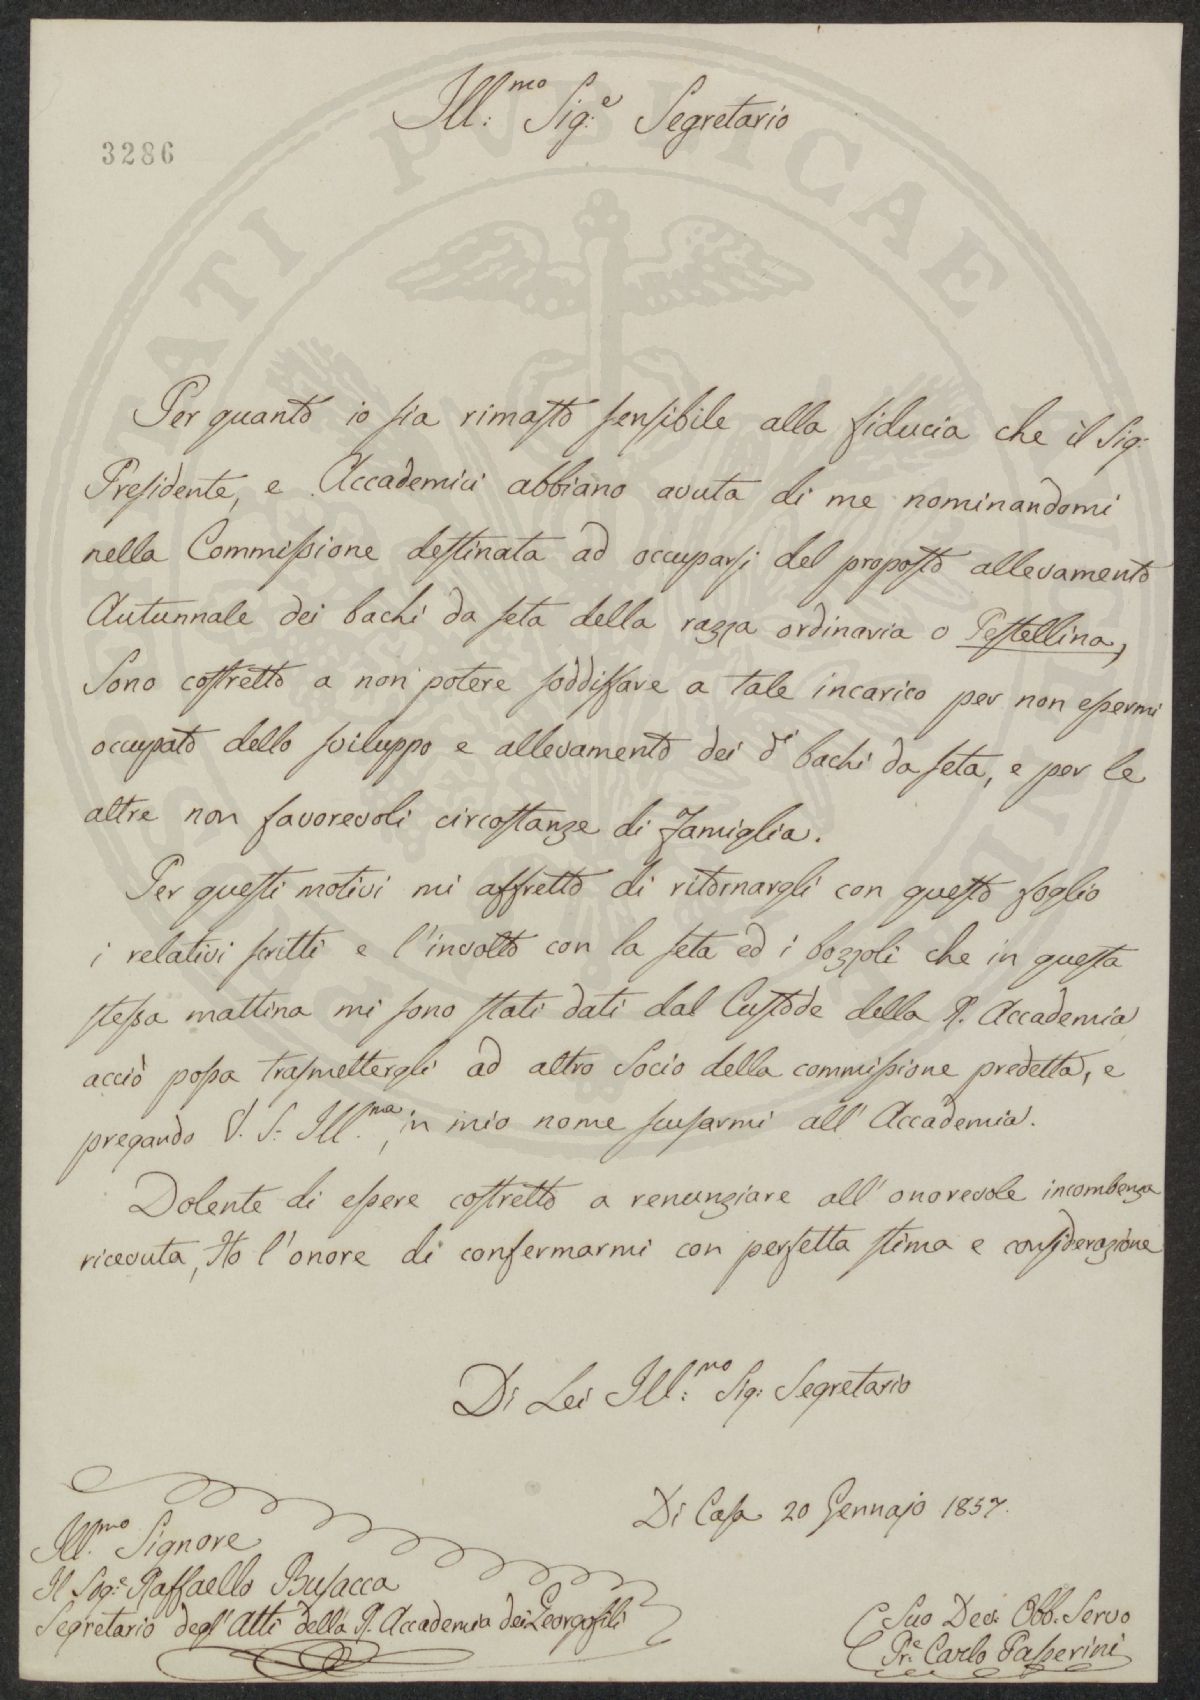 Ill:mo Sig:e Segretario
3286
Per quanto io sia rimasto sensibile alla fiducia che il Sig:
Presidente, e Accademici abbiano avuta di me nominandomi
nella Commissione destinata ad occuparsi del proposto allevamento
Autunnale dei bachi da seta della razza ordinaria o Pestellina,
Sono costretto a non potere soddisfare a tale incarico per non essermi
occupato dello sviluppo e allevamento dei di bachi da seta, e per le
altre non favorevoli circostanze di Famiglia.
Per questi motivi mi affretto di ritornargli con questo foglio
i relativi scritti e l'involto con la seta ed i bozzoli che in questa
stessa mattina mi sono stati dati dal Custode della R. Accademia
acciò possa trasmettergli ad altro Socio della commissione predetta, e
pregando V. S. Ill.ma, in mio nome scusarmi all'Accademia.
Dolente di essere costretto a renunziare all'onorevole incombenza
ricevuta, Ho l'onore di confermarmi con perfetta stima e considerazione
Di Lei Ill:mo Sig: Segretario
Di Casa 20 Gennajo 1857.
Ill.mo Signore
Il Sig:e Raffaello Busacca
Segretario degl'Atti della R. Accademia dei Georgofili
Suo Dev: Obb. Servo
Pr:e Carlo Passerini